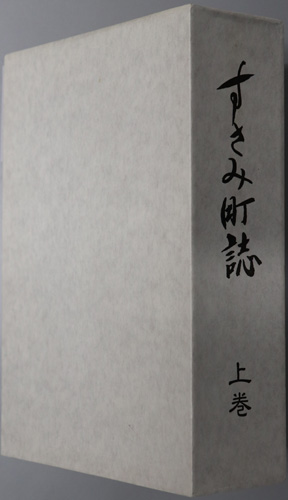 すさみ町誌
上巻